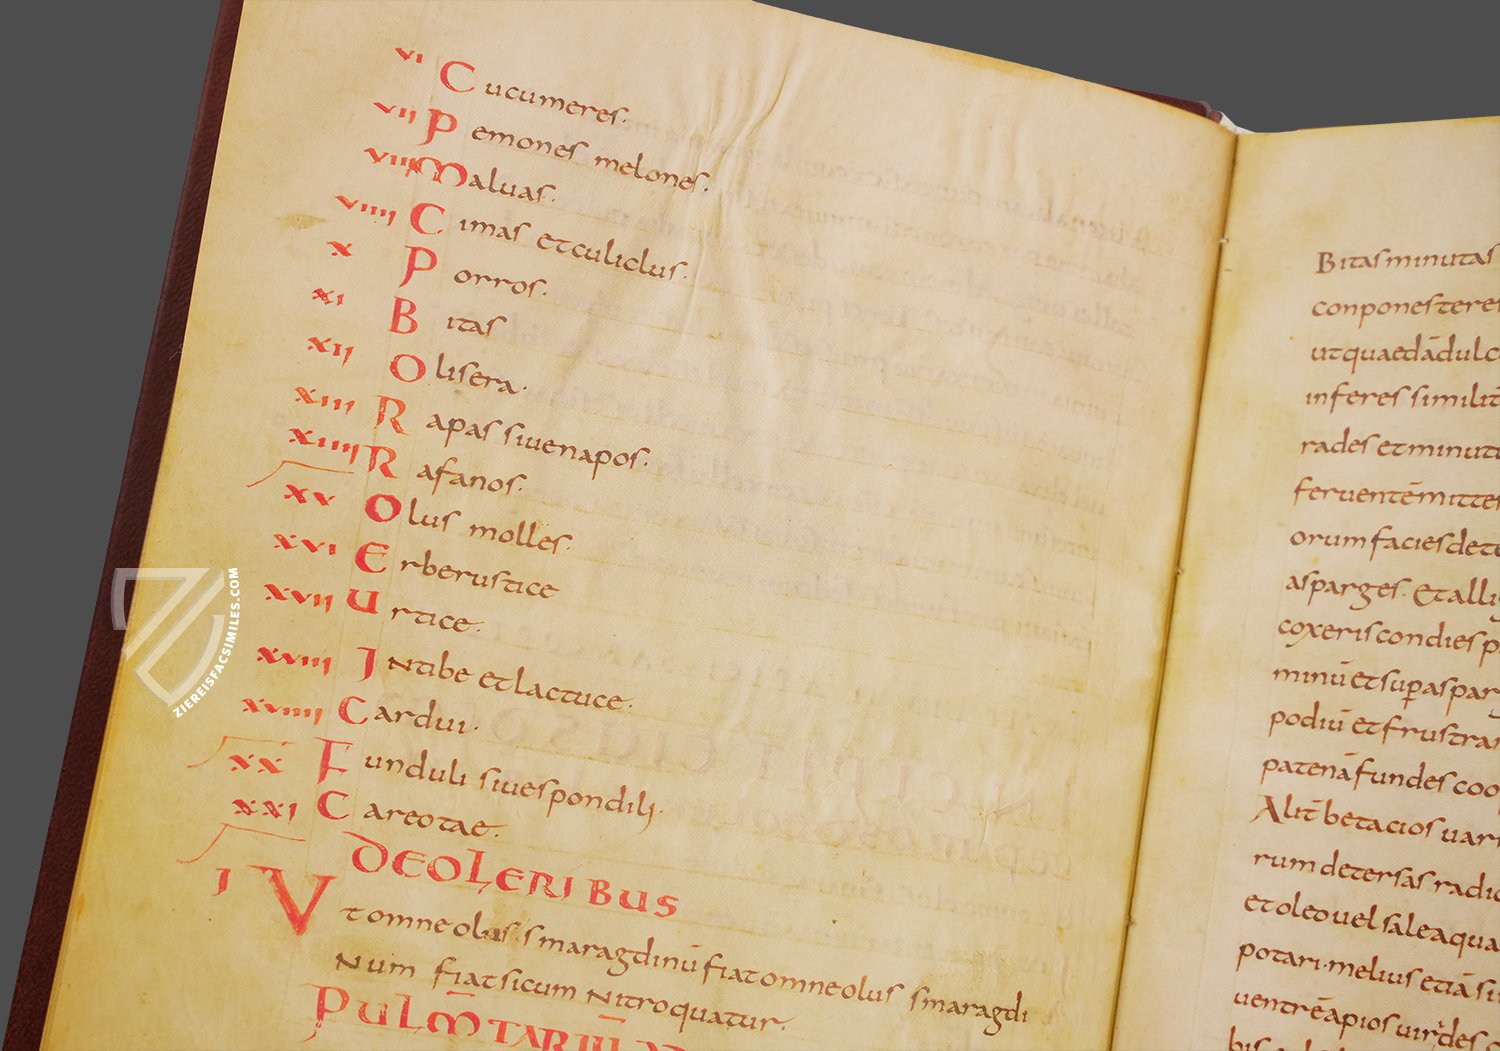 vi Cucumeres.
vii Pemones melones.
viii Maluas.
viiii Cimas et culiclus.
x Porros.
xi Bitas
xii Olisera.
xiii Rapas siue napos.
xiiii Rafanos.
xv Olus molles.
xvi Erbe rustice
xvii Urtice.
xviii Intibe et lactuce.
xviiii Cardui.
xx Funduli siue spondili.
xxi Careotae.
DE OLERIBUS
I Vt omne olus smaragdinū fiat omne olus smaragdi
num fiat si cum nitro quatur.
Bitas minutas
conpones teres
ut quaedā dulc
inferes similit
rades et minut
feruentē mittes
orum facies dete
asparges. Et alli
coxeris condies p
minū et sup aspar
podiū et frustra
patenā fundes coo
Alit betacios uar
rum detersas radic
et oleo uel sale aqua
potari. melius etiā si
uentrē apios uirides
ZIEREISFACSIMILES.COM